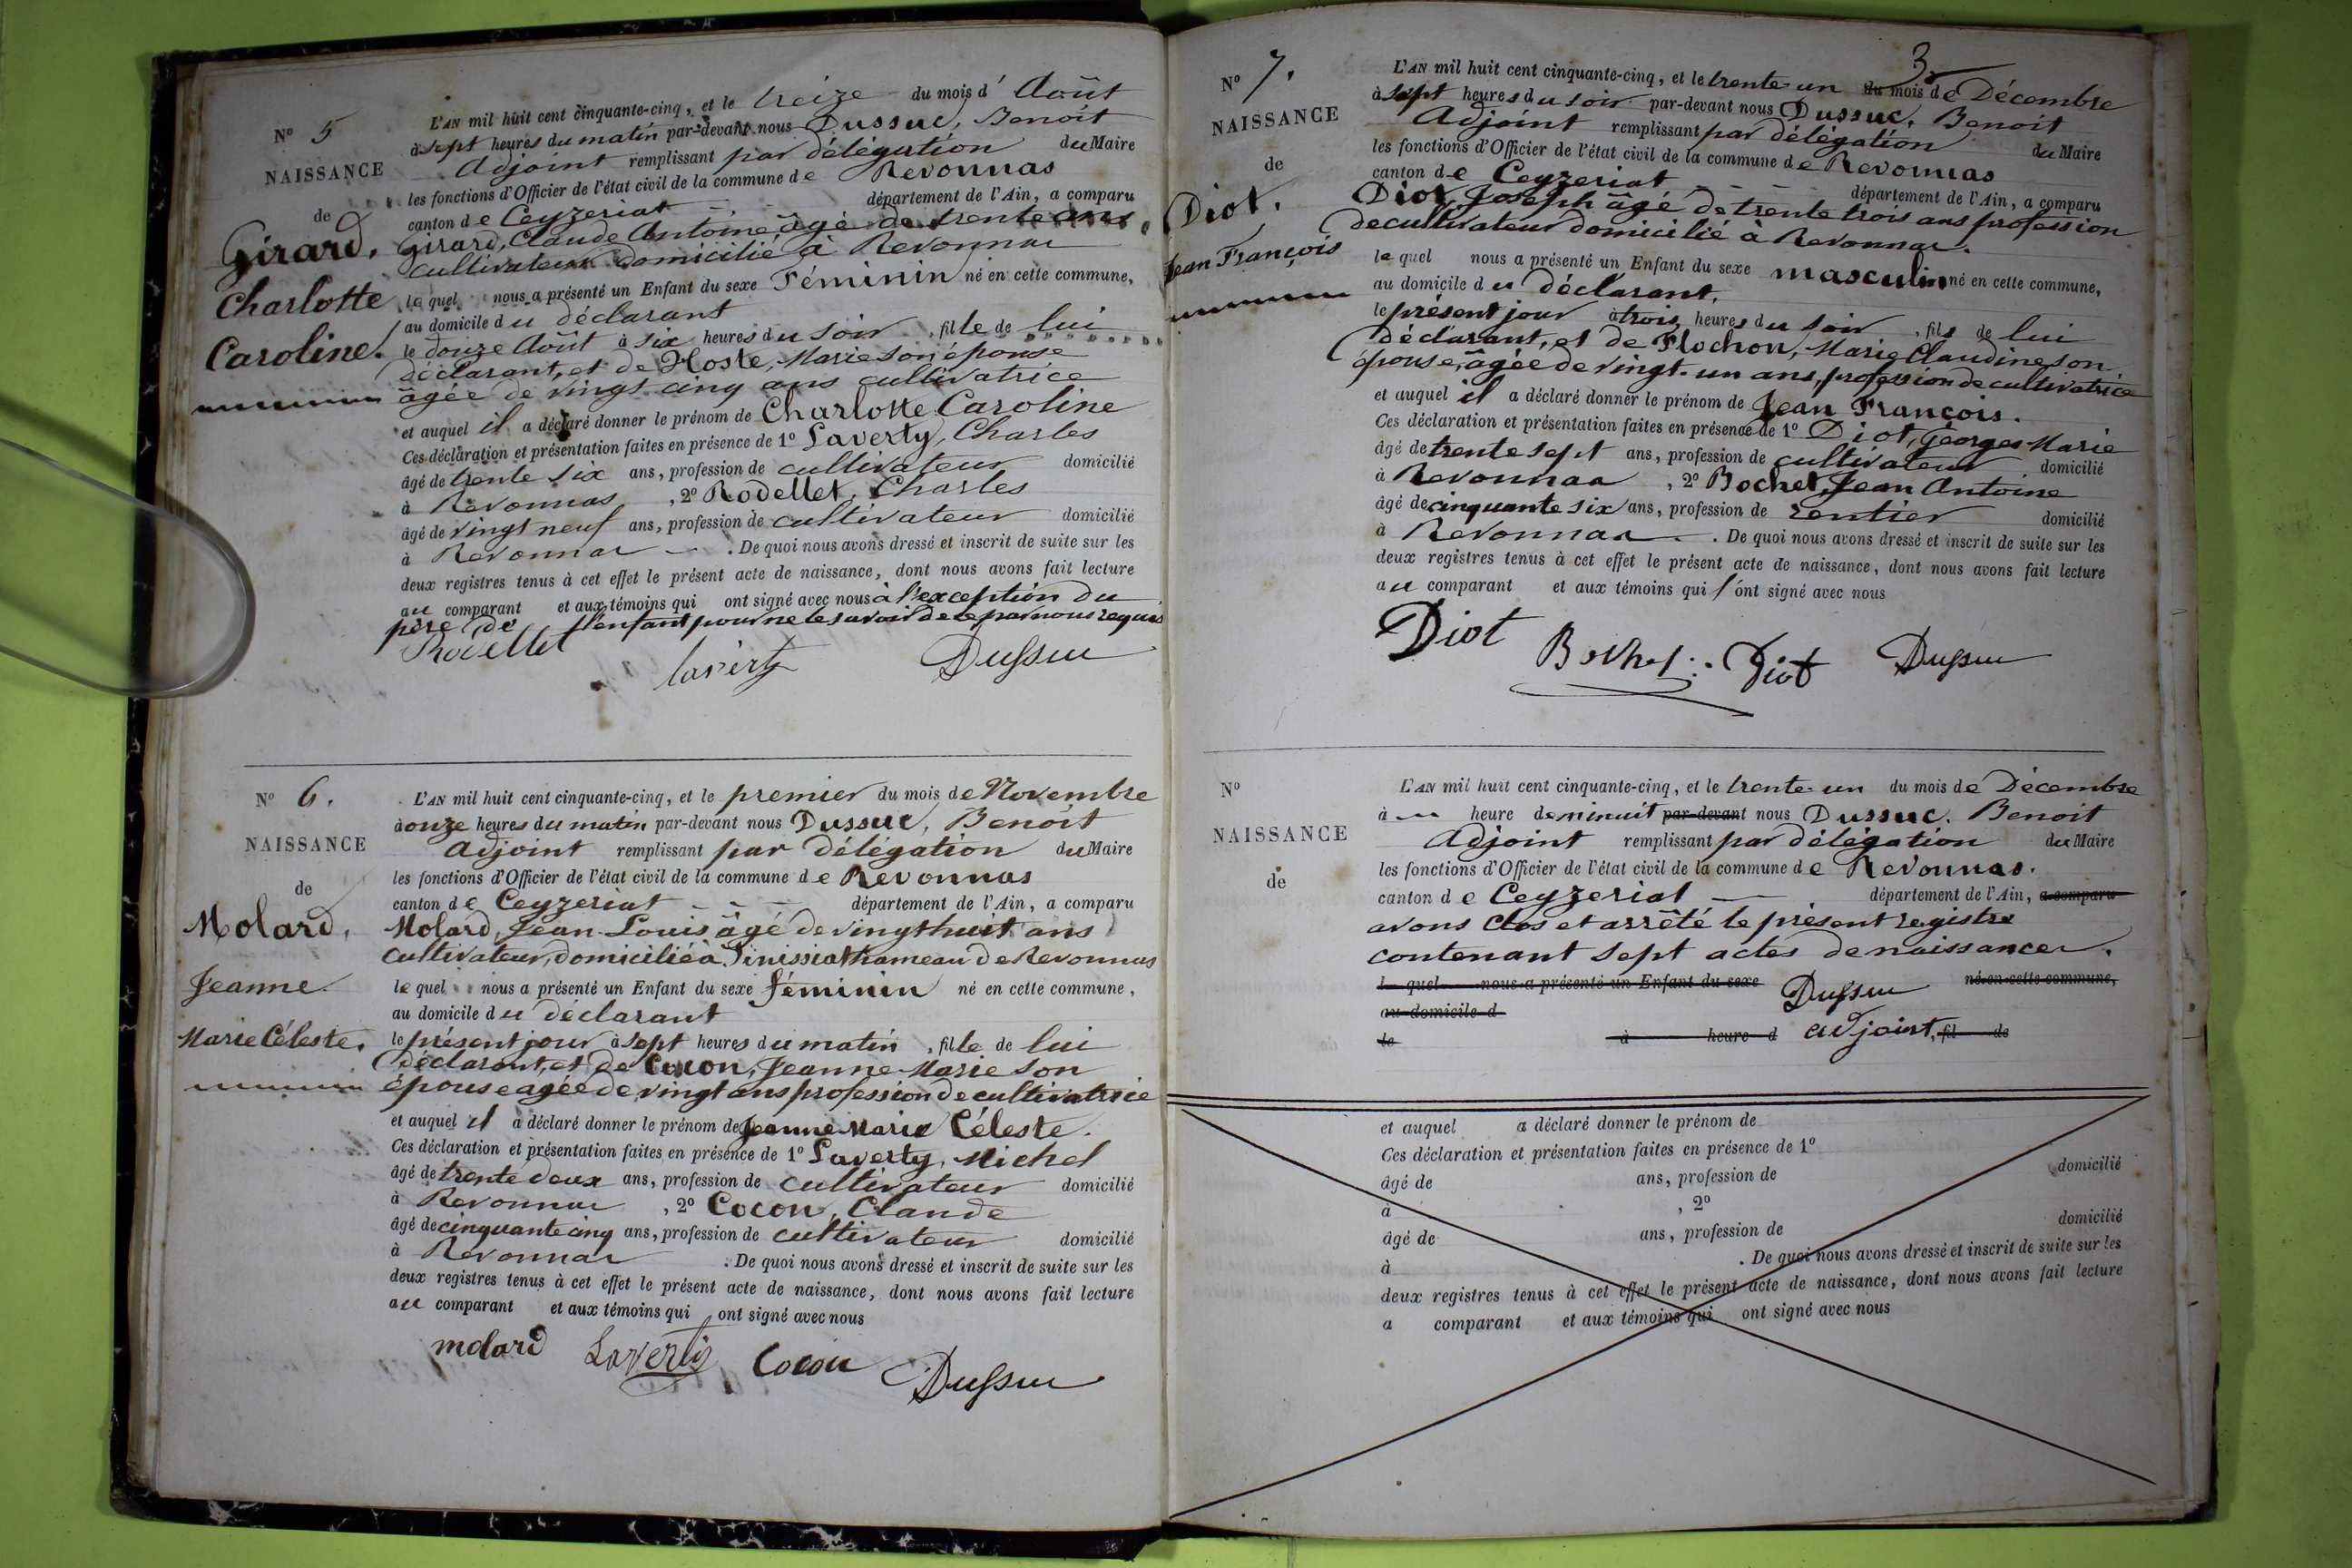 N° 5
NAISSANCE
de
Girard,
Charlotte
Caroline.
L'AN mil huit cent cinquante-cinq, et le treize du mois d'Août
à sept heures du matin par-devant nous Dussuc, Benoit
Adjoint remplissant par délégation du Maire
les fonctions d'Officier de l'état civil de la commune de Revonnas
canton de Ceyzeriat département de l'Ain, a comparu
Girard, Claude Antoine, âgé de trente ans
cultivateur domicilié à Revonnas
lequel nous a présenté un Enfant du sexe Féminin né en cette commune,
au domicile du déclarant
le douze Août à six heures du soir, fille de lui
déclarant, et de Hoste, Marie son épouse
âgée de vingt cinq ans cultivatrice
et auquel il a déclaré donner le prénom de Charlotte Caroline
Ces déclaration et présentation faites en présence de 1° Laverty, Charles
âgé de trente six ans, profession de cultivateur domicilié
à Revonnas, 2° Rodellet, Charles
âgé de vingt neuf ans, profession de cultivateur domicilié
à Revonnas - . De quoi nous avons dressé et inscrit de suite sur les
deux registres tenus à cet effet le présent acte de naissance, dont nous avons fait lecture
au comparant et aux témoins qui ont signé avec nous à l'exception du
père de l'enfant pour ne le savoir de ce par nous requis
Rodellet
laverty
Dussuc
N° 6.
NAISSANCE
de
Molard,
Jeanne
Marie Céleste.
L'AN mil huit cent cinquante-cinq, et le premier du mois de Novembre
à onze heures du matin par-devant nous Dussuc, Benoit
Adjoint remplissant par délégation du Maire
les fonctions d'Officier de l'état civil de la commune de Revonnas
canton de Ceyzeriat - - - département de l'Ain, a comparu
Molard, Jean-Louis âgé de vingt huit ans
cultivateur, domicilié à Sinissiat hameau de Revonnas
lequel nous a présenté un Enfant du sexe féminin né en cette commune,
au domicile du déclarant
le présent jour à sept heures du matin, fille de lui
déclarant, et de Cocon, Jeanne-Marie son
épouse agée de vingt ans profession de cultivatrice
et auquel il a déclaré donner le prénom de Jeanne Marie Céleste.
Ces déclaration et présentation faites en présence de 1° Laverty, Michel
âgé de trente deux ans, profession de cultivateur domicilié
à Revonnas, 2° Cocon, Claude
âgé de cinquante cinq ans, profession de cultivateur domicilié
à Revonnas . De quoi nous avons dressé et inscrit de suite sur les
deux registres tenus à cet effet le présent acte de naissance, dont nous avons fait lecture
au comparant et aux témoins qui ont signé avec nous
molard Laverty Cocon Dussuc
3
N° 7.
NAISSANCE
de
Diot.
Jean François
L'AN mil huit cent cinquante-cinq, et le trente un du mois de Décembre
à sept heures du soir par-devant nous Dussuc, Benoit
Adjoint remplissant par délégation du Maire
les fonctions d'Officier de l'état civil de la commune de Revonnas
canton de Ceyzeriat - - - département de l'Ain, a comparu
Diot, Joseph âgé de trente trois ans profession
de cultivateur domicilié à Revonnas.
lequel nous a présenté un Enfant du sexe masculin né en cette commune,
au domicile du déclarant.
le présent jour à trois heures du soir, fils de lui
déclarant, et de Flochon, Marie Claudine son
épouse, âgée de vingt-un ans, profession de cultivatrice
et auquel il a déclaré donner le prénom de Jean François.
Ces déclaration et présentation faites en présence de 1° Diot, Georges Marie
âgé de trente sept ans, profession de cultivateur domicilié
à Revonnas, 2° Bochet, Jean Antoine
âgé de cinquante six ans, profession de rentier domicilié
à Revonnas . De quoi nous avons dressé et inscrit de suite sur les
deux registres tenus à cet effet le présent acte de naissance, dont nous avons fait lecture
au comparant et aux témoins qui ont signé avec nous
Diot Bochet Diot Dussuc
N°
NAISSANCE
de
L'AN mil huit cent cinquante-cinq, et le trente-un du mois de Décembre
à heure de minuit par-devant nous Dussuc, Benoit
Adjoint remplissant par délégation du Maire
les fonctions d'Officier de l'état civil de la commune de Revonnas.
canton de Ceyzeriat - département de l'Ain, a comparu
avons clos et arrêté le présent registre
contenant sept actes de naissances.
l quel nous a présenté un Enfant du sexe Dussuc né en cette commune,
au domicile d
le à heure d adjoint, fil de
et auquel a déclaré donner le prénom de
Ces déclaration et présentation faites en présence de 1°
âgé de ans, profession de domicilié
à , 2°
âgé de ans, profession de domicilié
à . De quoi nous avons dressé et inscrit de suite sur les
deux registres tenus à cet effet le présent acte de naissance, dont nous avons fait lecture
a comparant et aux témoins qui ont signé avec nous